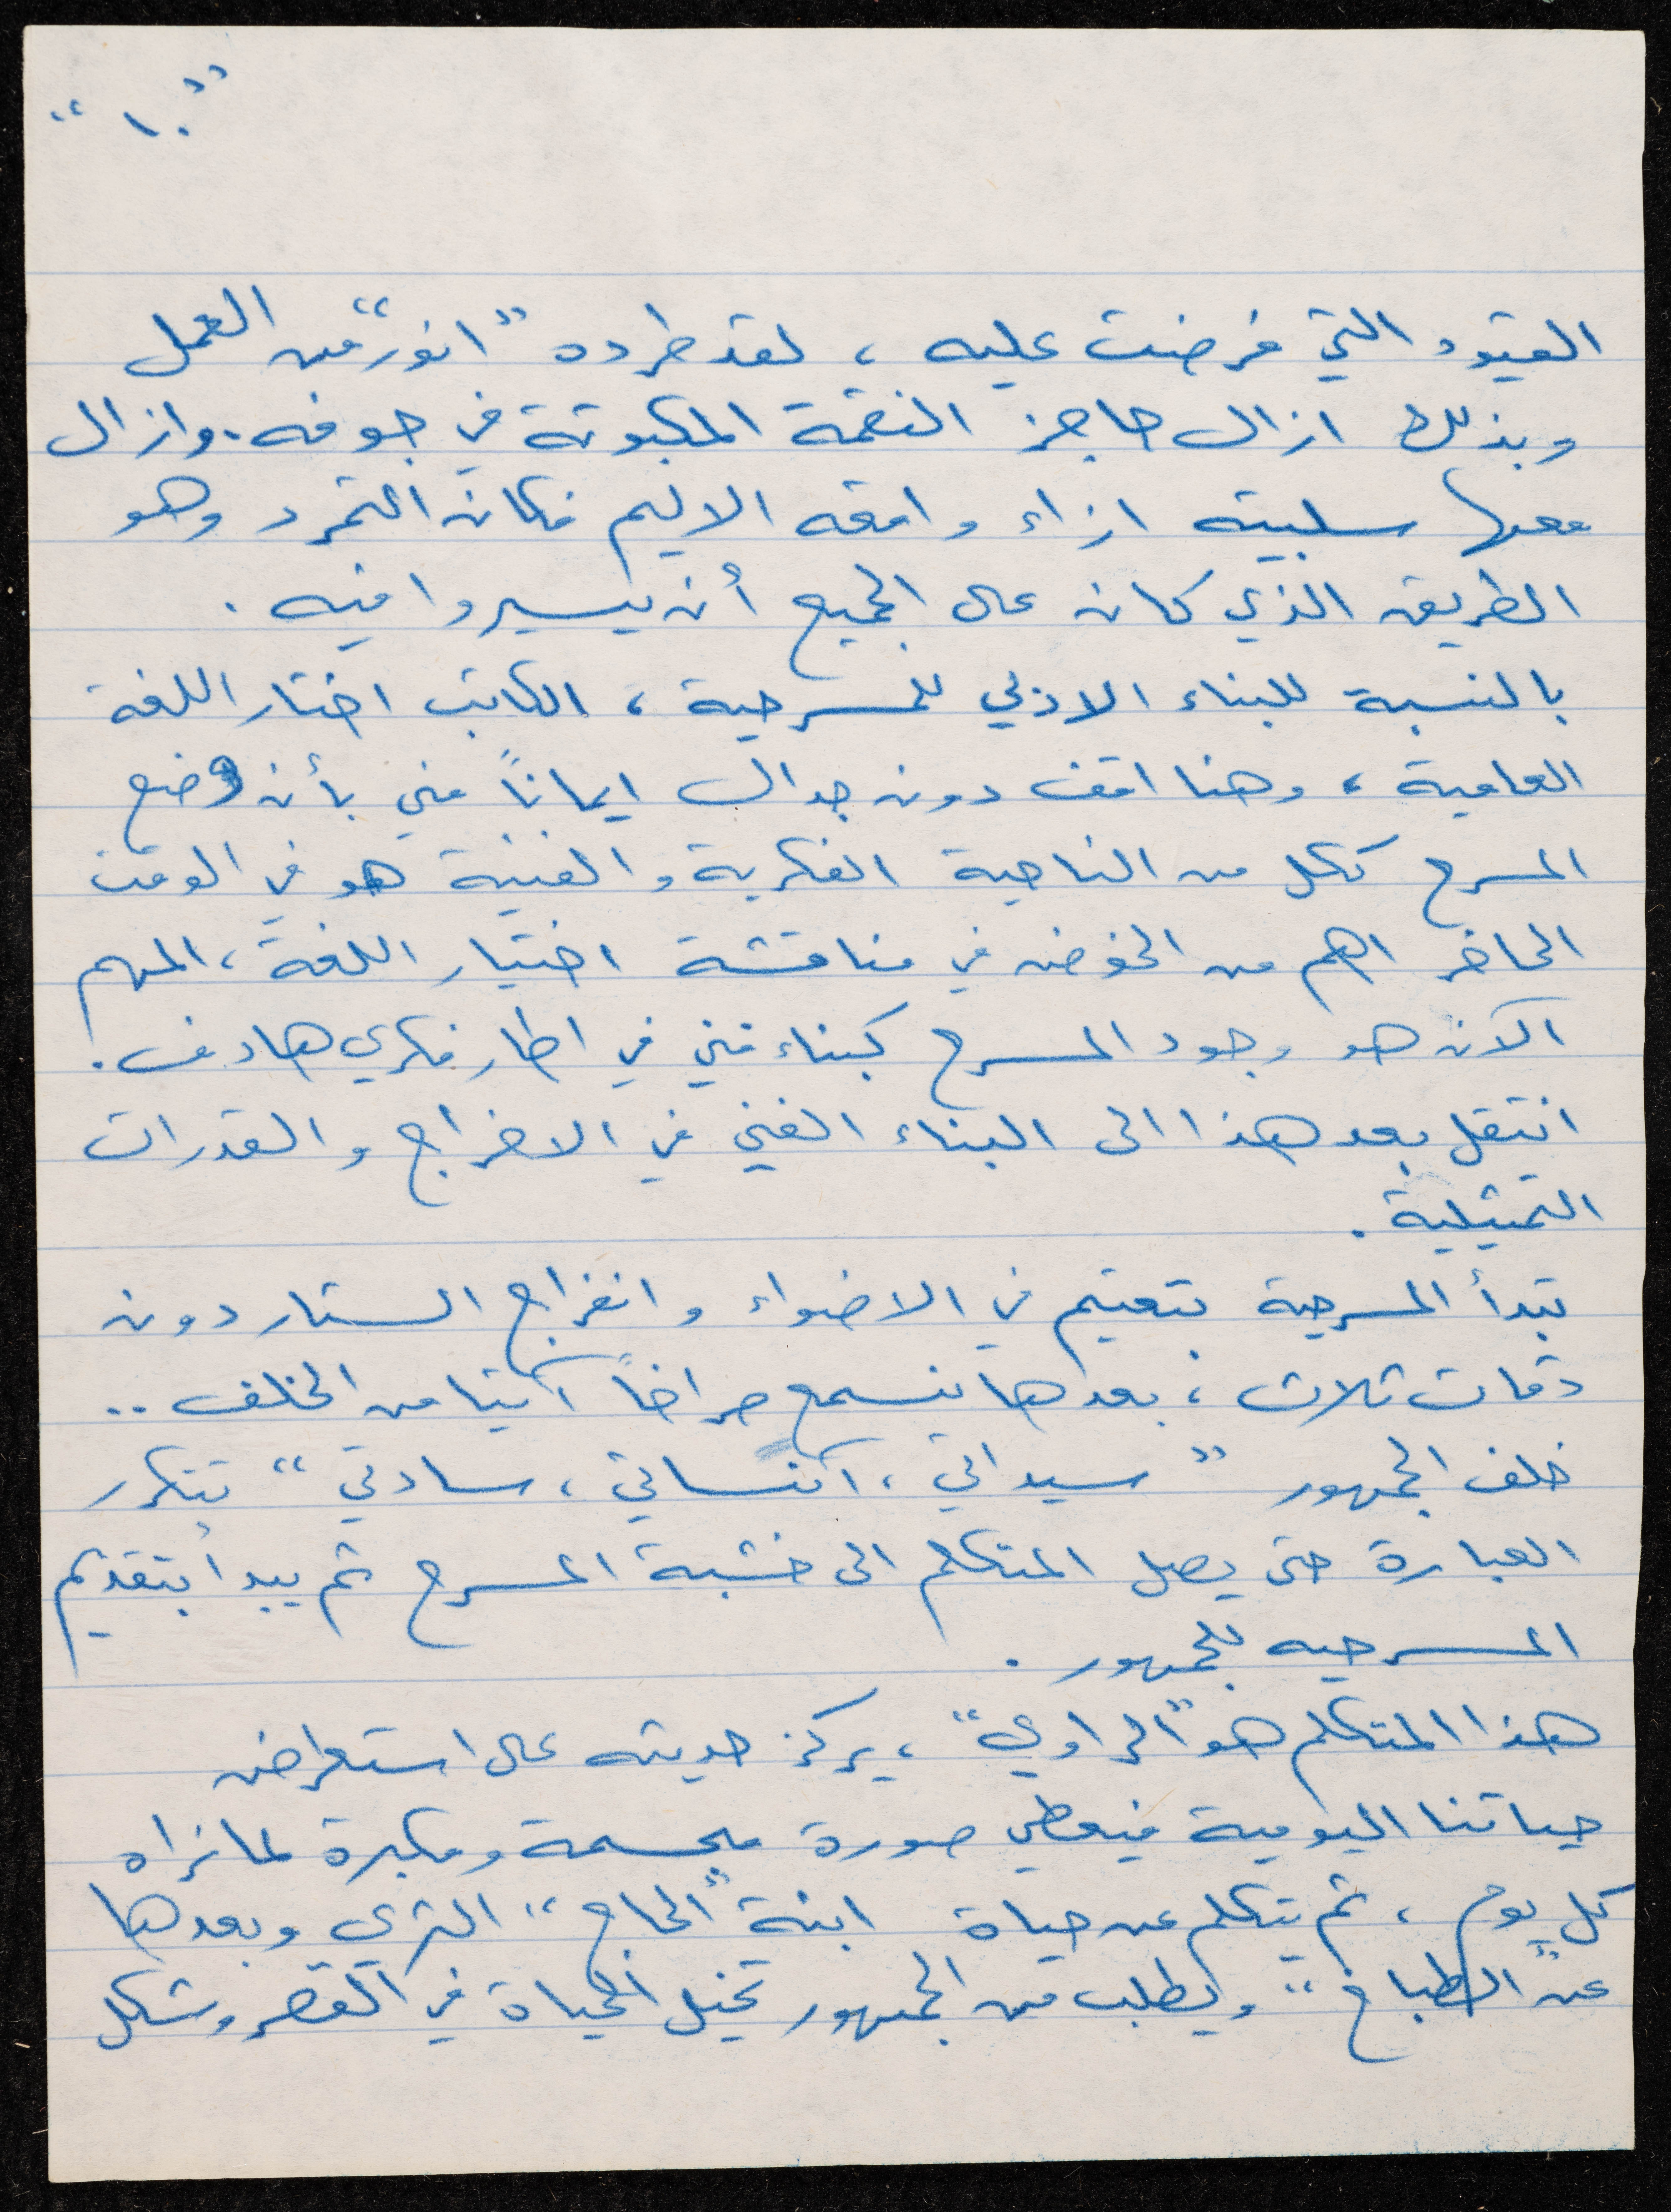 "١٠"
القيود التي فرضت عليه ، لقد طرده "انور" من العمل
وبذلك ازال حاجز النقمة المكبوتة في جوفه. وازال
معها سلبيته ازاء واقعه الاليم فكان التمرد وهو
الطريق الذي كان على الجميع أن يسيروا فيه .
بالنسبة للبناء الادبي للمسرحية ، الكاتب اختار اللغة
العامية ، وهنا اقف دون جدال ايماناً مني بأن وضع
المسرح ككل من الناحية الفكرية والفنية هو في الوقت
الحاضر اهم من الخوض في مناقشة اختيار اللغة ، المهم
الآن هو وجود المسرح كبناء فني في اطار فكري هادف .
انتقل بعد هذا الى البناء الفني في الاخراج والقدرات
التمثيلية .
تبدأ المسرحية بتعتيم في الاضواء وانفراج الستار دون
دقات ثلاث ، بعدها نسمع صراخاً آتيا من الخلف ..
خلف الجمهور "سيداتي ، آنساتي ، سادتي" تتكرر
العبارة حتى يصل المتكلم الى خشبة المسرح ثم يبدأ بتقديم
المسرحيه للجمهور .
هذا المتكلم هو "الراوي" ، يركز حديثه على استعراض
حياتنا اليومية فيعطي صورة مجسمة ومكبرة لما نراه
كل يوم ، ثم يتكلم عن حياة ابنة "الحاج" الثري وبعدها
عن "الطباخ" ويطلب من الجمهور تخيل الحياة في القصر وشكل